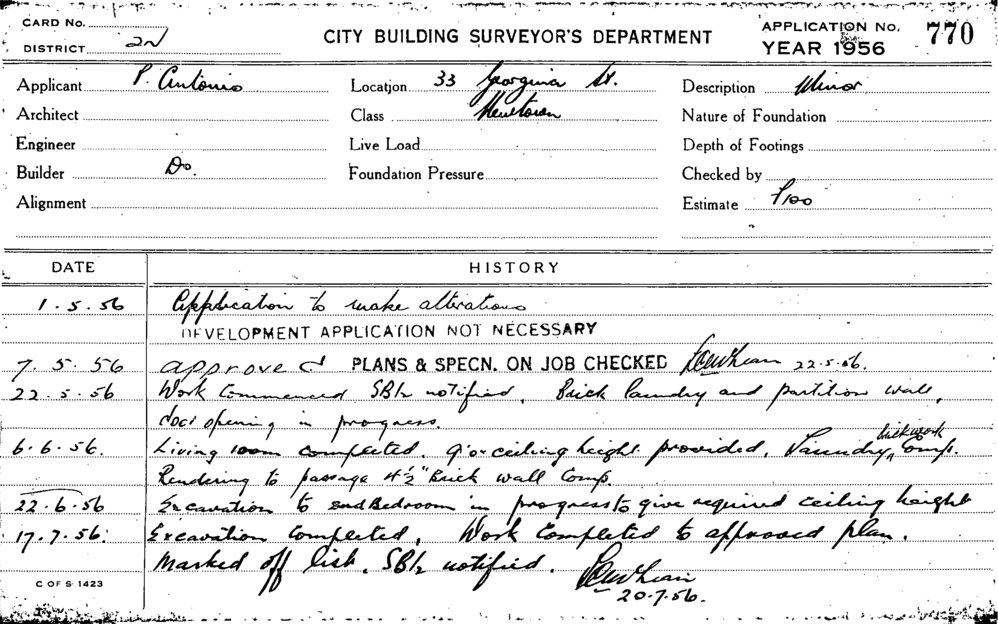 CARD No.
DISTRICT 2N
CITY BUILDING SURVEYOR'S DEPARTMENT
APPLICATION No. 770
YEAR 1956
Applicant P. Antonio
Location 33 Georgina St.
Description Minor
Architect
Class Newtown
Nature of Foundation
Engineer
Live Load
Depth of Footings
Builder Do.
Foundation Pressure
Checked by
Alignment
Estimate £100
DATE HISTORY
1.5.56 Application to make alterations
DEVELOPMENT APPLICATION NOT NECESSARY
7.5.56 approved PLANS & SPECN. ON JOB CHECKED 22-5-56.
22-5-56 Work Commenced SB/2 notified. Brick laundry and partition wall,
door opening in progress.
6.6.56. Living room completed. ceiling height provided. Laundry brickwork Comp.
Rendering to passage 4½" Brick wall Comp.
22.6.56 Excavation to end Bedroom in progress to give required ceiling height
17.7.56. Excavation Completed. Work Completed to approved plan.
Marked off list. SB/2 notified.
20.7.56.
C OF S 1423